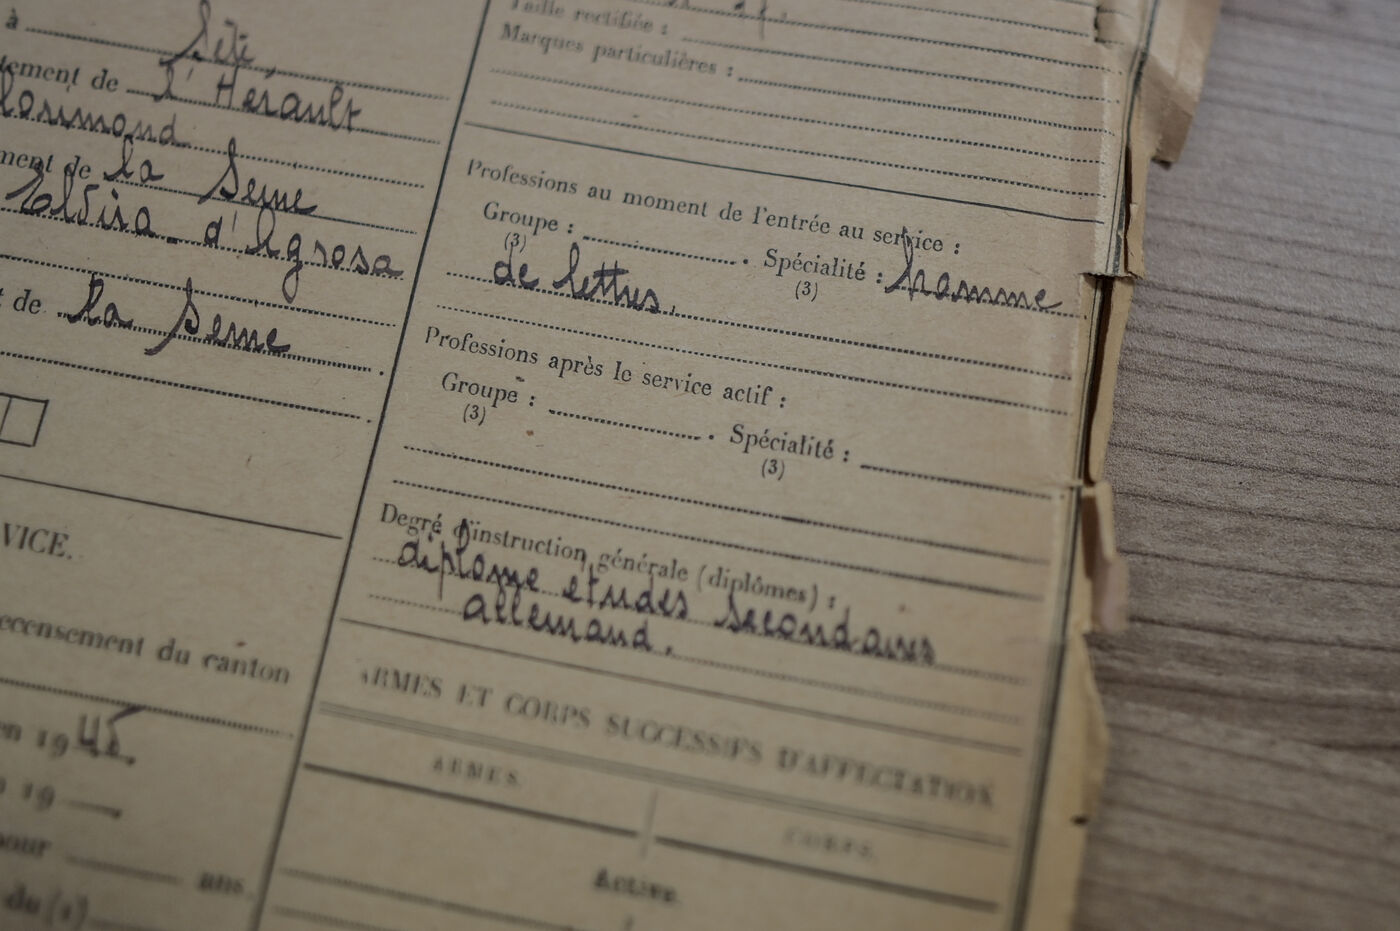 à Sète,
tement de l'Hérault
lorimond
ment de la Seine
Elvira d'Agrosa
t de la Seine
VICE.
ecensement du canton
en 1945
19
pour ans.
du (1)
Taille rectifiée :
Marques particulières :
Professions au moment de l'entrée au service :
Groupe : . Spécialité : homme
(3) (3)
de lettres.
Professions après le service actif :
Groupe : . Spécialité :
(3) (3)
Degré d'instruction générale (diplômes) :
diplome études secondaires
allemand.
ARMES ET CORPS SUCCESSIFS D'AFFECTATION
ARMES. CORPS.
Active